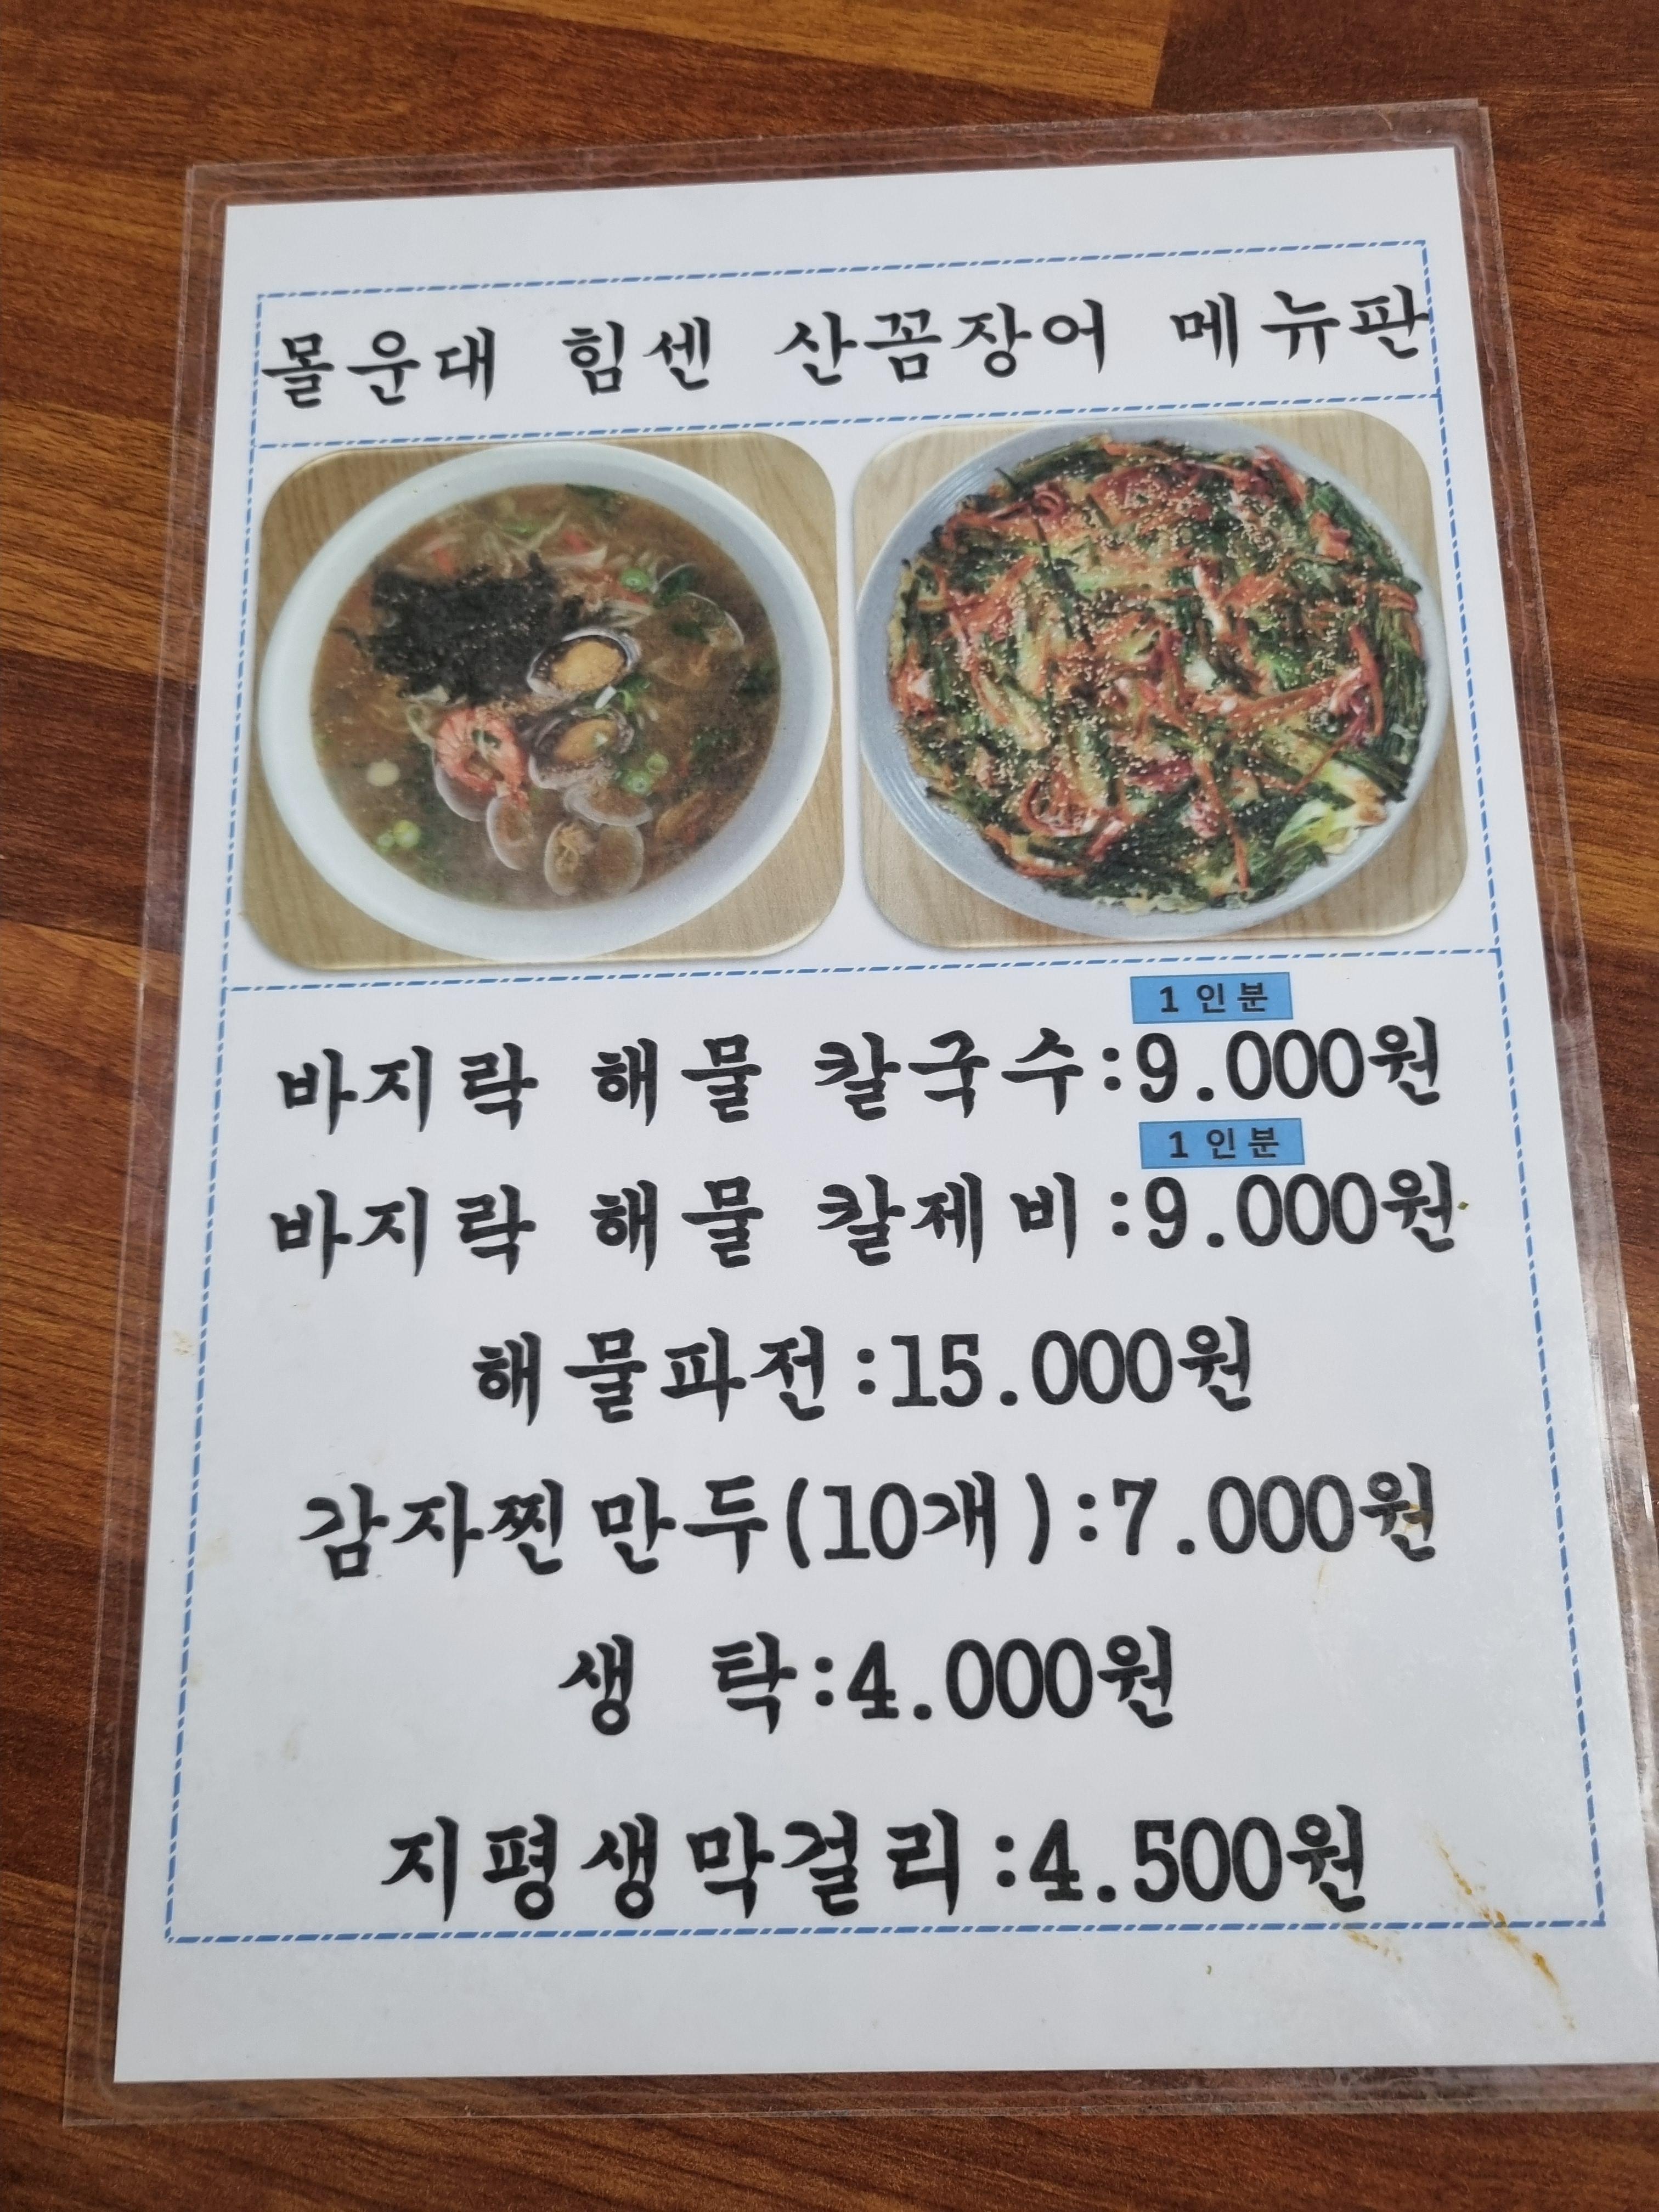 몰운대 힘센 산꼼장어 메뉴판
1 인분
바지락 해물 칼국수:9.000원
1 인분
바지락 해물 칼제비:9.000원
해물파전:15.000원
감자찐만두(10개):7.000원
생 탁:4.000원
지평생막걸리:4.500원